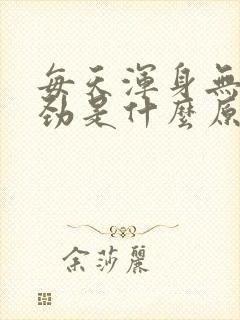 每天渾身無
勁是什麼原
余莎麗